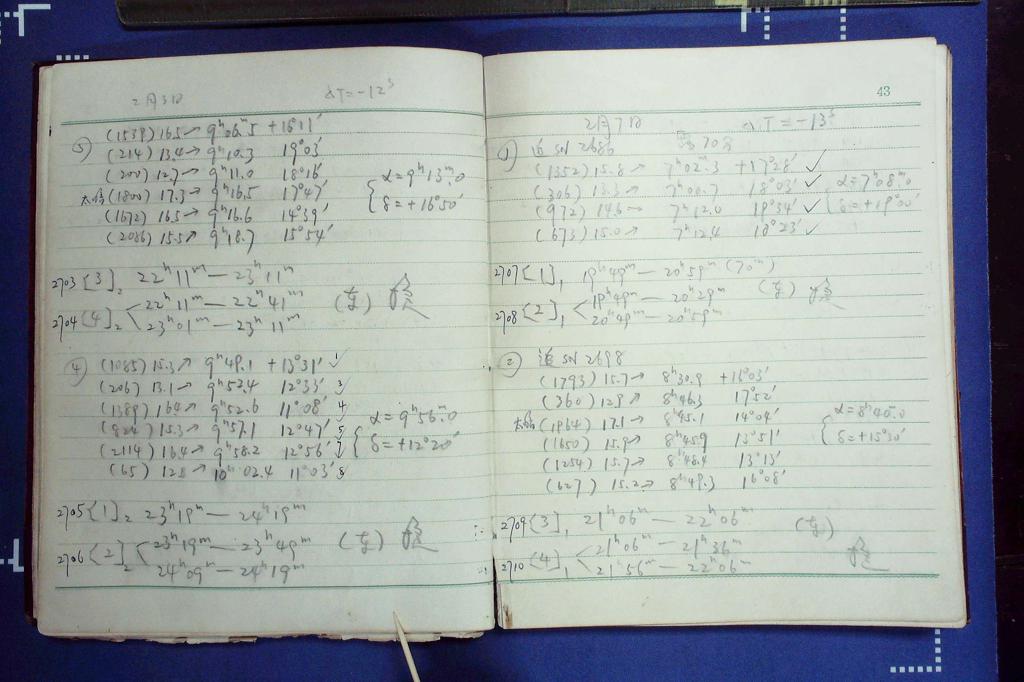 2月3日 ΔT=-12ˢ
③ (1539) 16.5→ 9ʰ06ᵐ.5 +16°11′
(214) 13.4→ 9ʰ10.3 19°03′
(200) 12.7→ 9ʰ11.0 18°16′
(1800) 17.3→ 9ʰ16.5 17°47′
(1672) 16.5→ 9ʰ16.6 14°39′
(2086) 15.5→ 9ʰ18.7 15°54′
α=9ʰ13ᵐ.0
δ=+16°50′
2703 [3]₂ 22ʰ11ᵐ—23ʰ11ᵐ
2704 [4]₂ 22ʰ11ᵐ—22ʰ41ᵐ
23ʰ01ᵐ—23ʰ11ᵐ
④ (1085) 15.3→ 9ʰ49.1 +13°31′ 1
(206) 13.1→ 9ʰ52.4 12°33′ 3
(1389) 16.4→ 9ʰ52.6 11°08′ 4
15.3→ 9ʰ57.1 12°47′ 5
(2114) 16.4→ 9ʰ58.2 12°56′
(65) 12.8→ 10ʰ02.4 11°03′ 8
α=9ʰ56ᵐ.0
δ=+12°20′
2705 [1]₂ 23ʰ19ᵐ—24ʰ19ᵐ
2706 [2]₂ 23ʰ19ᵐ—23ʰ49ᵐ
24ʰ09ᵐ—24ʰ19ᵐ
43
2月7日 ΔT=-13ˢ
① 追SN 2686 露70分
(1352) 15.8→ 7ʰ02ᵐ.3 +17°28′ ✓
(306) 13.3→ 7ʰ00.7 18°03′ ✓
(972) 14.6→ 7ʰ12.0 19°34′ ✓
(673) 15.0→ 7ʰ12.4 18°23′ ✓
α=7ʰ08ᵐ.0
δ=+19°00′
2707 [1]₁ 19ʰ49ᵐ—20ʰ59ᵐ (70ᵐ)
2708 [2]₁ 19ʰ49ᵐ—20ʰ29ᵐ
20ʰ49ᵐ—20ʰ59ᵐ
② 追SN 2698
(1793) 15.7→ 8ʰ30.9 +16°03′
(360) 12.9→ 8ʰ46.3 17°52′
(1964) 17.1→ 8ʰ45.1 14°04′
(1650) 15.9→ 8ʰ45.9 13°51′
(1254) 15.7→ 8ʰ48.4 13°13′
(627) 15.2→ 8ʰ49.3 16°08′
α=8ʰ40ᵐ.0
δ=+15°30′
2709 [3]₁ 21ʰ06ᵐ—22ʰ06ᵐ
2710 [4]₁ 21ʰ06ᵐ—21ʰ36ᵐ
21ʰ56ᵐ—22ʰ06ᵐ